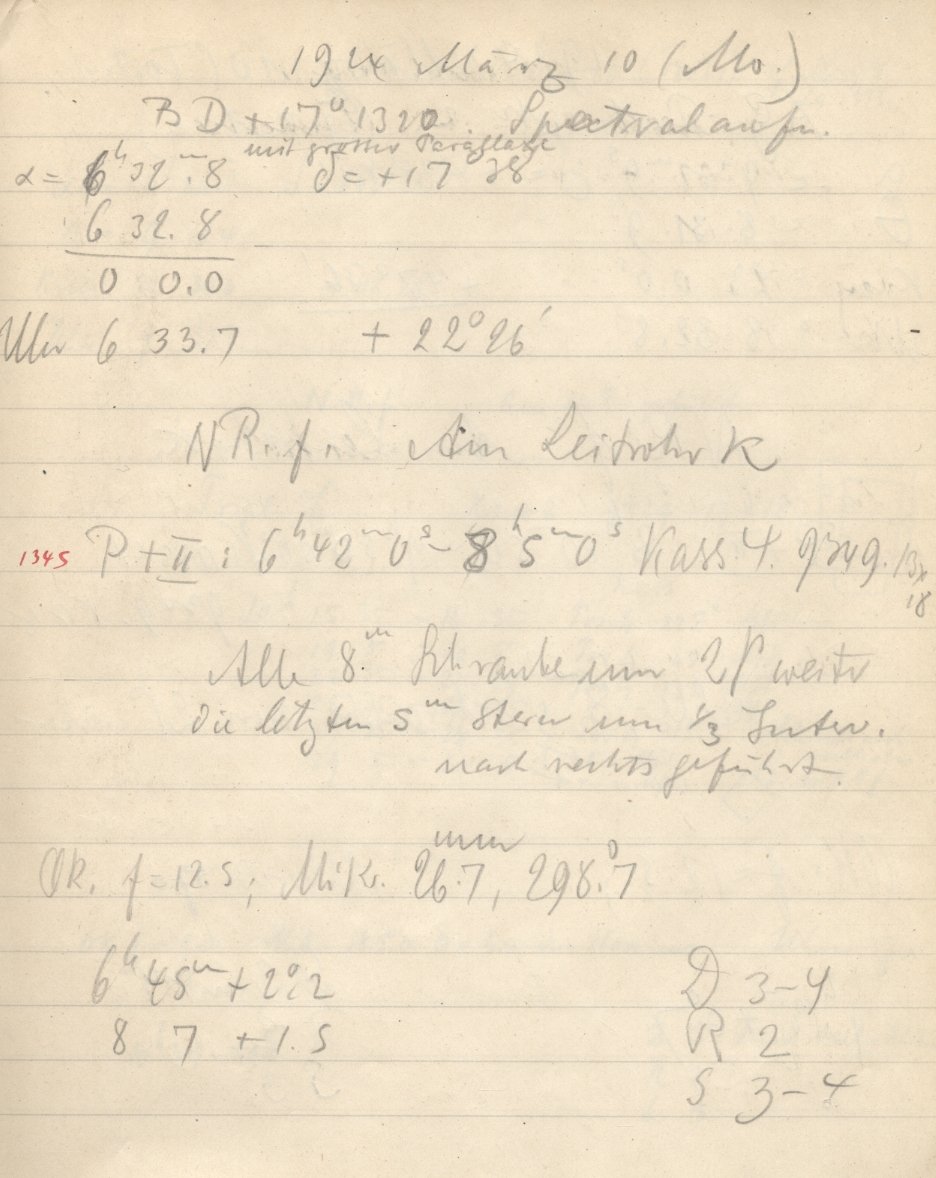 1924 März 10 (Mo.)
BD +17° 1320. Spectralaufn.
mit grosser
α = 6ʰ 32ᵐ.8 δ = +17° 38
6 32.8
0 0.0
Uhr 6 33.7 + 22° 26'
NR.f. Am Leitrohr K
1345 P + II : 6ʰ 42ᵐ 0ˢ – 8ʰ 5ᵐ 0ˢ Kass 4. 9×9. 13/18
Alle 8ᵐ Schraube um 2P weiter
die letzten 5ᵐ Stern um 1/3 Interv.
nach rechts geführt.
Ok. f = 12.5; Mikr. 26.7ᵐᵐ, 298°.7
6ʰ 45ᵐ +2°.2 D 3–4
8 7 +1.5 R 2
S 3–4